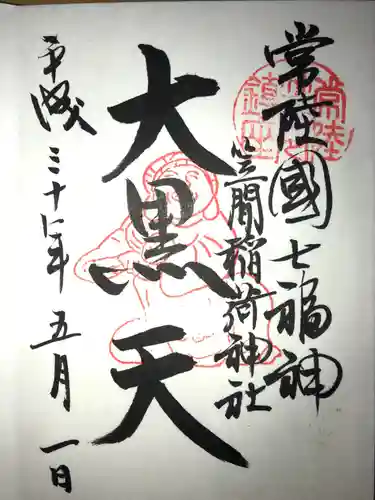 常陸國七福神
笠間稲荷神社
大黒天
平成三十一年五月一日